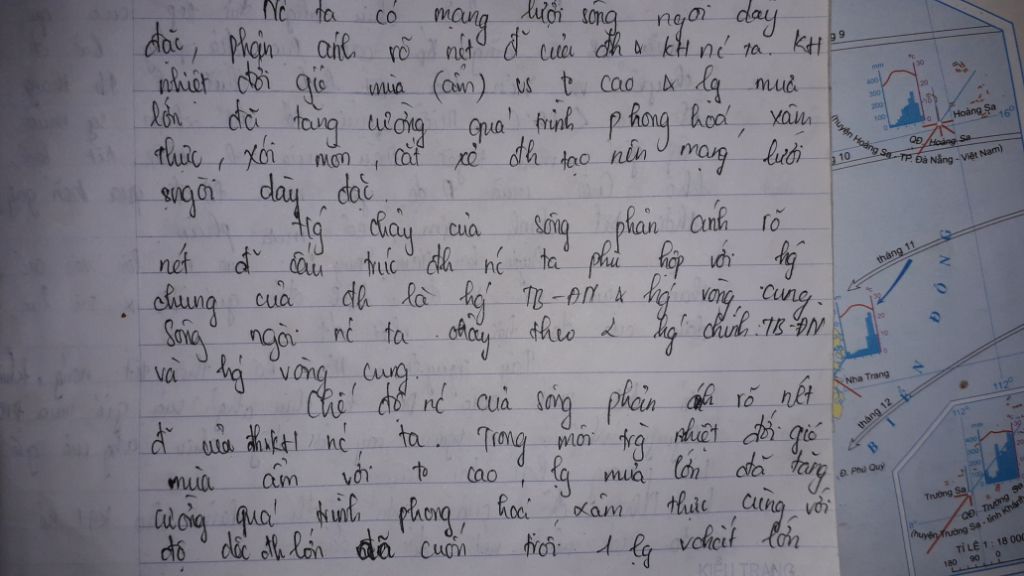 Nc ta có mạng lưới sông ngòi dày
đặc, phản ánh rõ nét đ² của đh & KH nc ta. KH
nhiệt đới gió mùa (ẩm) vs t° cao & lg mưa
lớn đã tăng cường quá trình phong hoá, xâm
thực, xói mòn, cắt xẻ đh tạo nên mạng lưới
sngòi dày đặc.
Hg chảy của sông phản ánh rõ
nét đ² cấu trúc đh nc ta phù hợp với hg
chung của đh là hg TB-ĐN & hg vòng cung.
Sông ngòi nc ta chảy theo 2 hg chính: TB-ĐN
và hg vòng cung.
Chế độ nc của sông phản ánh rõ nét
đ² của đh&KH nc ta. Trong môi trg nhiệt đới gió
mùa ẩm với to cao, lg mưa lớn đã tăng
cường quá trình phong, hoá xâm thực cùng với
độ dốc đh lớn đã cuốn trôi 1 lg vchất lớn
KIỀU TRANG
ng 9
mm
400
300
200
100
0
30
20
10
0
Hoàng Sa
16°
QĐ. Hoàng Sa
(huyện Hoàng Sa - TP. Đà Nẵng - Việt Nam)
ng 10
tháng 11
BIỂN ĐÔNG
Nha Trang
tháng 12
Đ. Phú Quý
112°
112°
Trường Sa
QĐ. Trường Sa
(huyện Trường Sa - tỉnh Khánh
TỈ LỆ 1 : 18 000
180 90 0